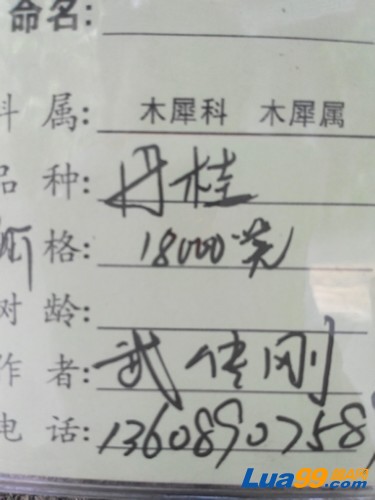 命名:
科属: 木犀科 木犀属
品种: 丹桂
价格: 18000元
树龄:
作者: 武传刚
电话: 1360890758
Lua99.com